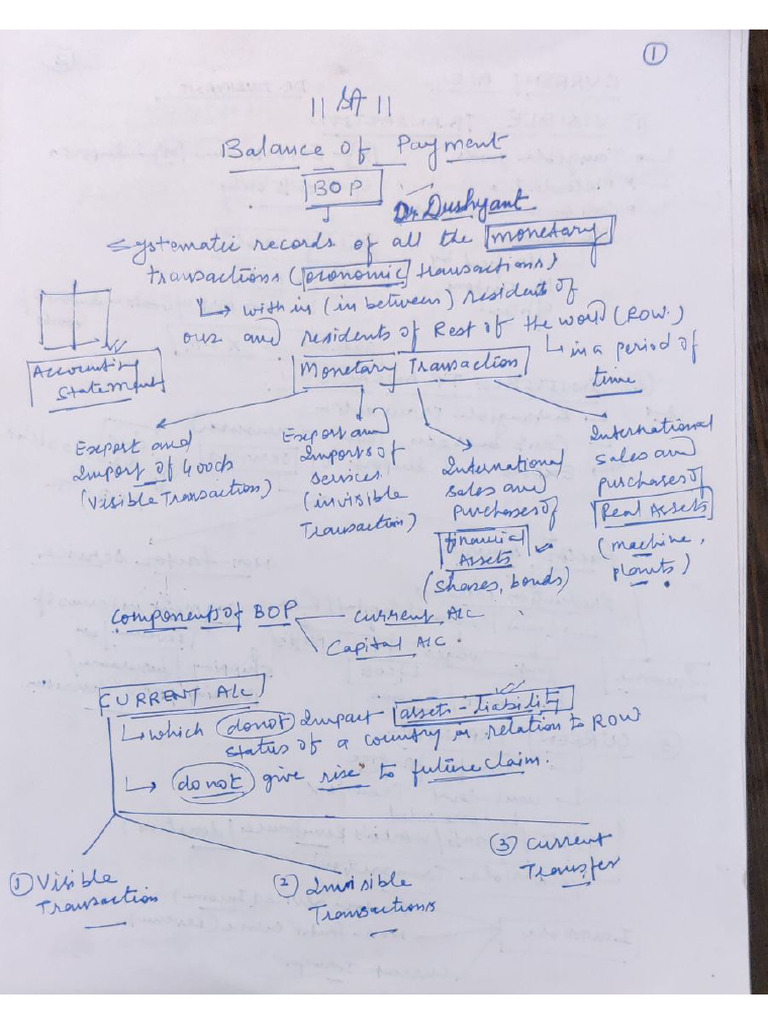 1
|| ||
Balance of Payment
BOP
Dr. Dushyant
Systematic records of all the monetary
transactions (economic transactions)
with in (in between) resident of
our and residents of Rest of the world (ROW.)
in a period of
time
Accounting
Statement
Monetary Transaction
Export and
Import of Goods
(Visible Transaction)
Export and
Imports of
services
(invisible
Transaction)
International
sales and
purchases of
financial
Assets
(shares, bonds)
International
sales and
purchases of
Real Assets
(machine,
plants)
Components of BOP
Current A/C
Capital A/C.
CURRENT A/c
which donot Impact assets - liability
status of a country in relation to ROW
donot give rise to future claim.
① Visible
Transaction
② Invisible
Transactions
③ Current
Transfer